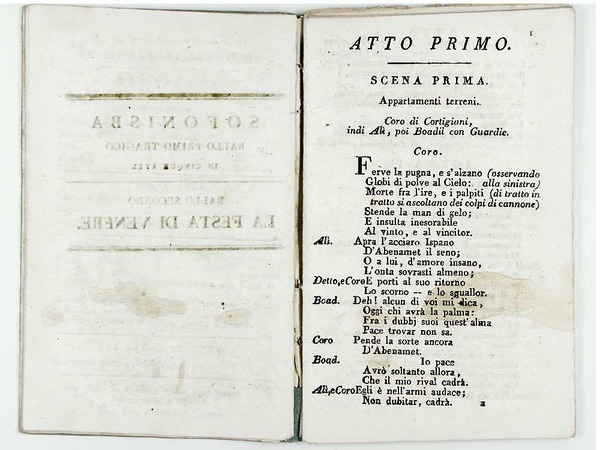 SOFONISBA
BALLO PRIMO TRAGICO
IN CINQUE ATTI.
BALLO SECONDO
LA FESTA DI VENERE.
1
ATTO PRIMO.
SCENA PRIMA.
Appartamenti terreni.
Coro di Cortigiani,
indi Alì, poi Boadil con Guardie.
Coro.
Ferve la pugna, e s'alzano (osservando
Globi di polve al Cielo: alla sinistra)
Morte fra l'ire, e i palpiti (di tratto in
tratto si ascoltano dei colpi di cannone)
Stende la man di gelo;
E insulta inesorabile
Al vinto, e al vincitor.
Alì. Apra l'acciaro Ispano
D'Abenamet il seno;
O a lui, d'amore insano,
L'onta sovrasti almeno;
Detto, e Coro E porti al suo ritorno
Lo scorno -- e lo squallor.
Boad. Deh! alcun di voi mi dica,
Oggi chi avrà la palma:
Fra i dubbj suoi quest'alma
Pace trovar non sa.
Coro Pende la sorte ancora
D'Abenamet.
Boad. Io pace
Avrò soltanto allora,
Che il mio rival cadrà.
Alì, e Coro Egli è nell'armi audace;
Non dubitar, cadrà. a